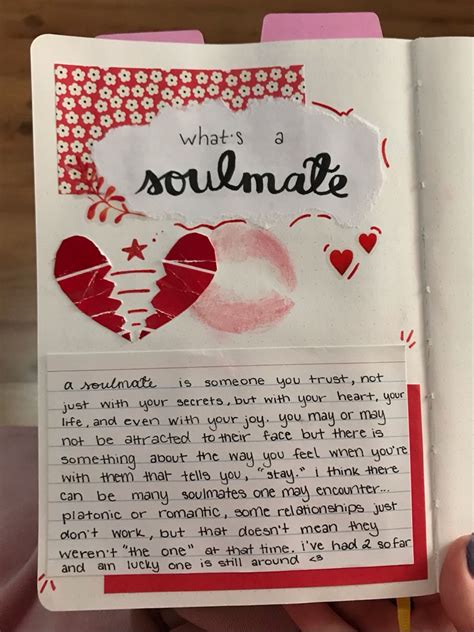 what's a
soulmate
a soulmate is someone you trust, not
just with your secrets, but with your heart, your
life, and even with your joy. you may or may
not be attracted to their face but there is
something about the way you feel when you're
with them that tells you, "stay." i think there
can be many soulmates one may encounter...
platonic or romantic, some relationships just
don't work, but that doesn't mean they
weren't "the one" at that time. i've had 2 so far
and am lucky one is still around <3